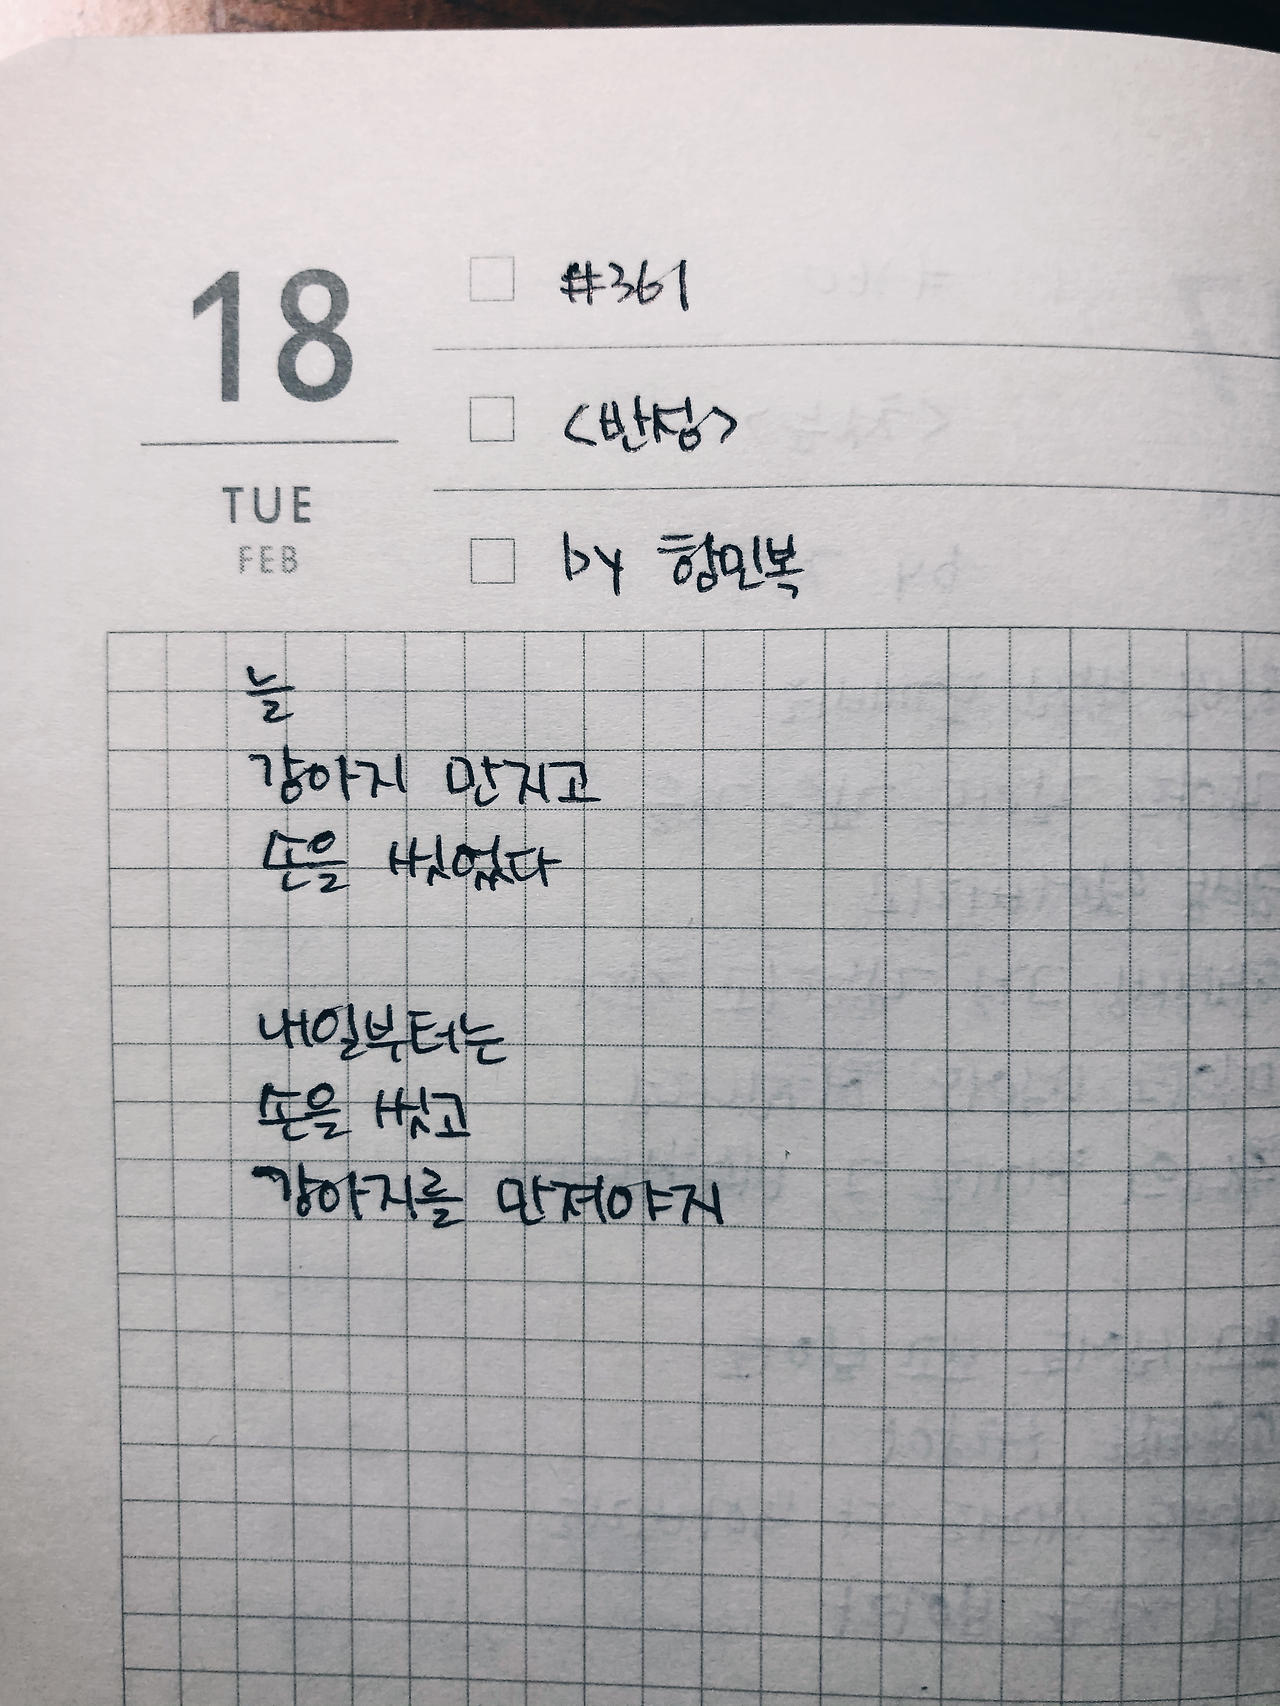 18
TUE
FEB
#361
<반성>
by 함민복
늘
강아지 만지고
손을 씻었다
내일부터는
손을 씻고
강아지를 만져야지